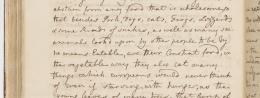 any food that is wholesome
that besides Pork, Dogs, Cats, Frogs, Lizzards,
some kinds of snakes, as well as many sea
animals looked upon by other people to be by
no means Eatable, are their Constant food, in
the vegetable way they also eat many
things which Europeans would never think
of even if starving with hunger, as the
young leaves of many trees, that bunch of